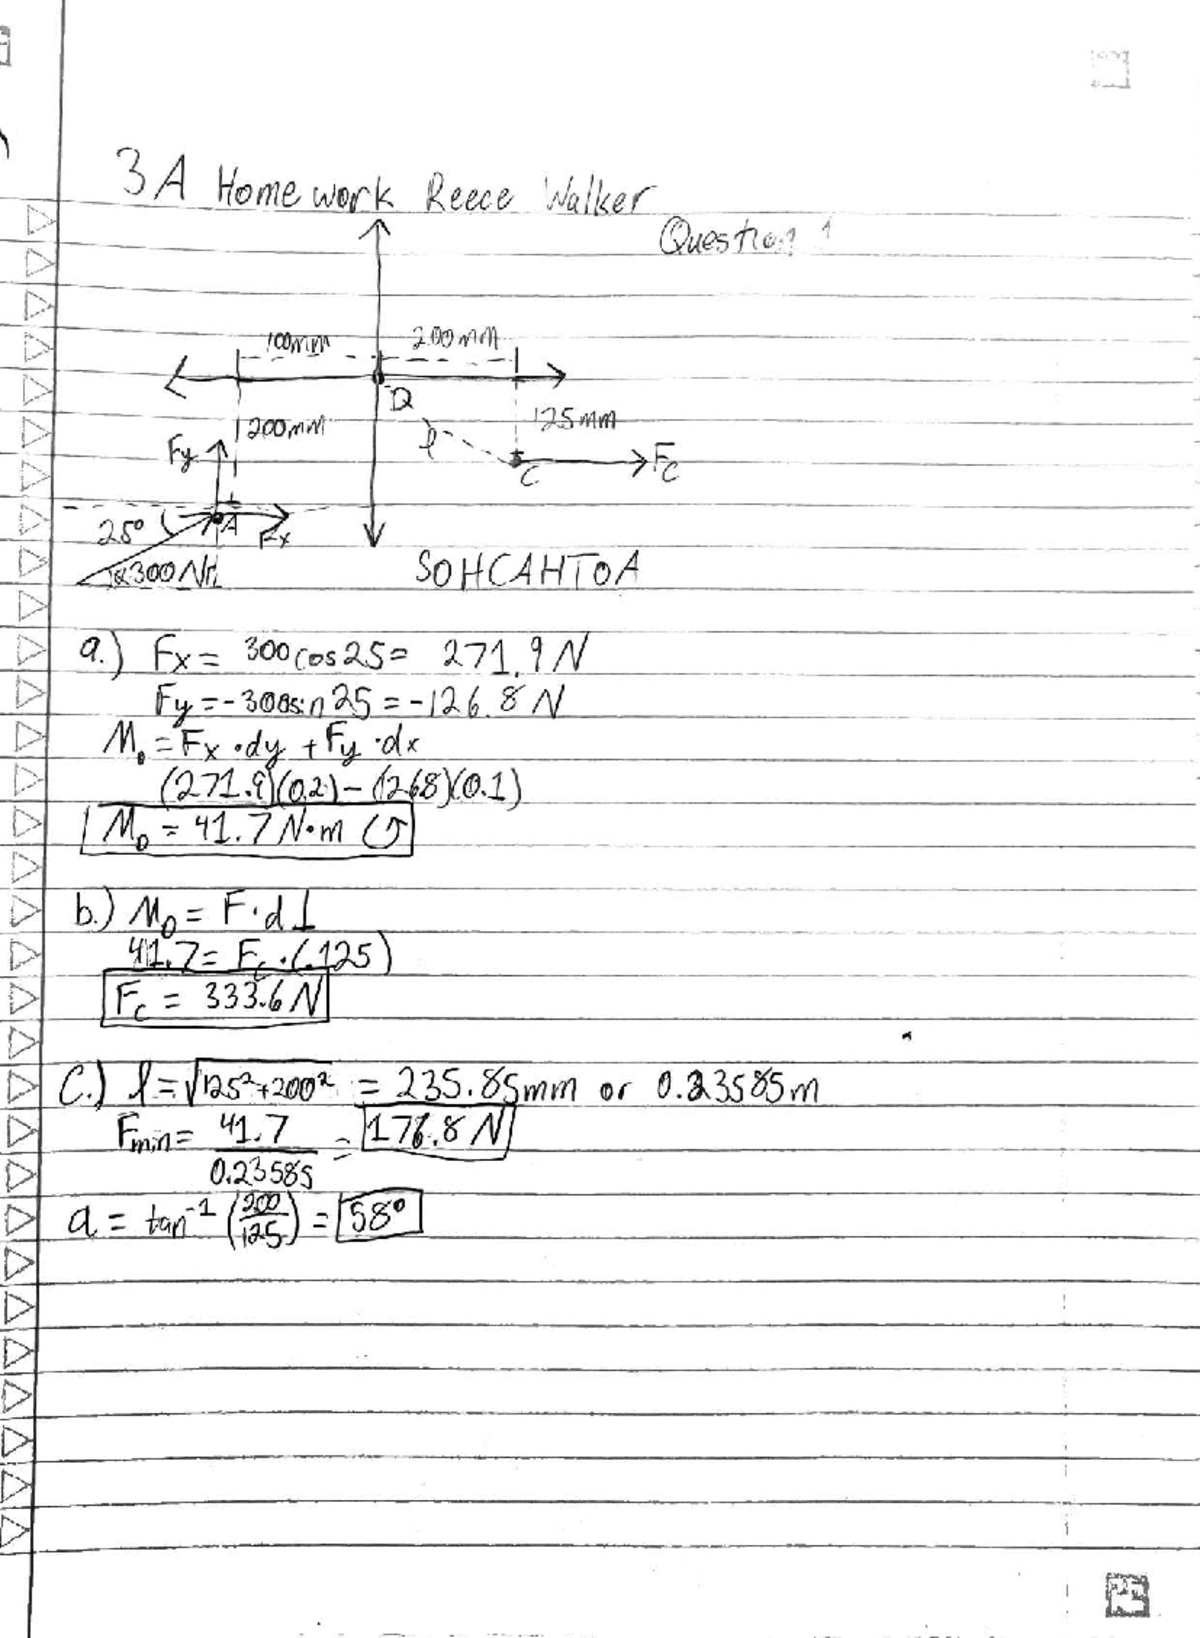 3A Homework Reece Walker
Question 1
100mm 200mm
D
200mm 125mm
Fy l C Fc
25° A Fx
300N
SOHCAHTOA
a.) Fx = 300cos25= 271.9N
Fy = -300sin25 = -126.8N
M₀ = Fx·dy + Fy·dx
(271.9)(0.2) - (126.8)(0.1)
M₀ = 41.7 N·m ↺
b.) M₀ = F·d⊥
41.7 = Fc·(.125)
Fc = 333.6 N
C.) l = √125²+200² = 235.85mm or 0.23585m
Fmin = 41.7 / 0.23585 = 176.8 N
a = tan⁻¹ (200/125) = 58°